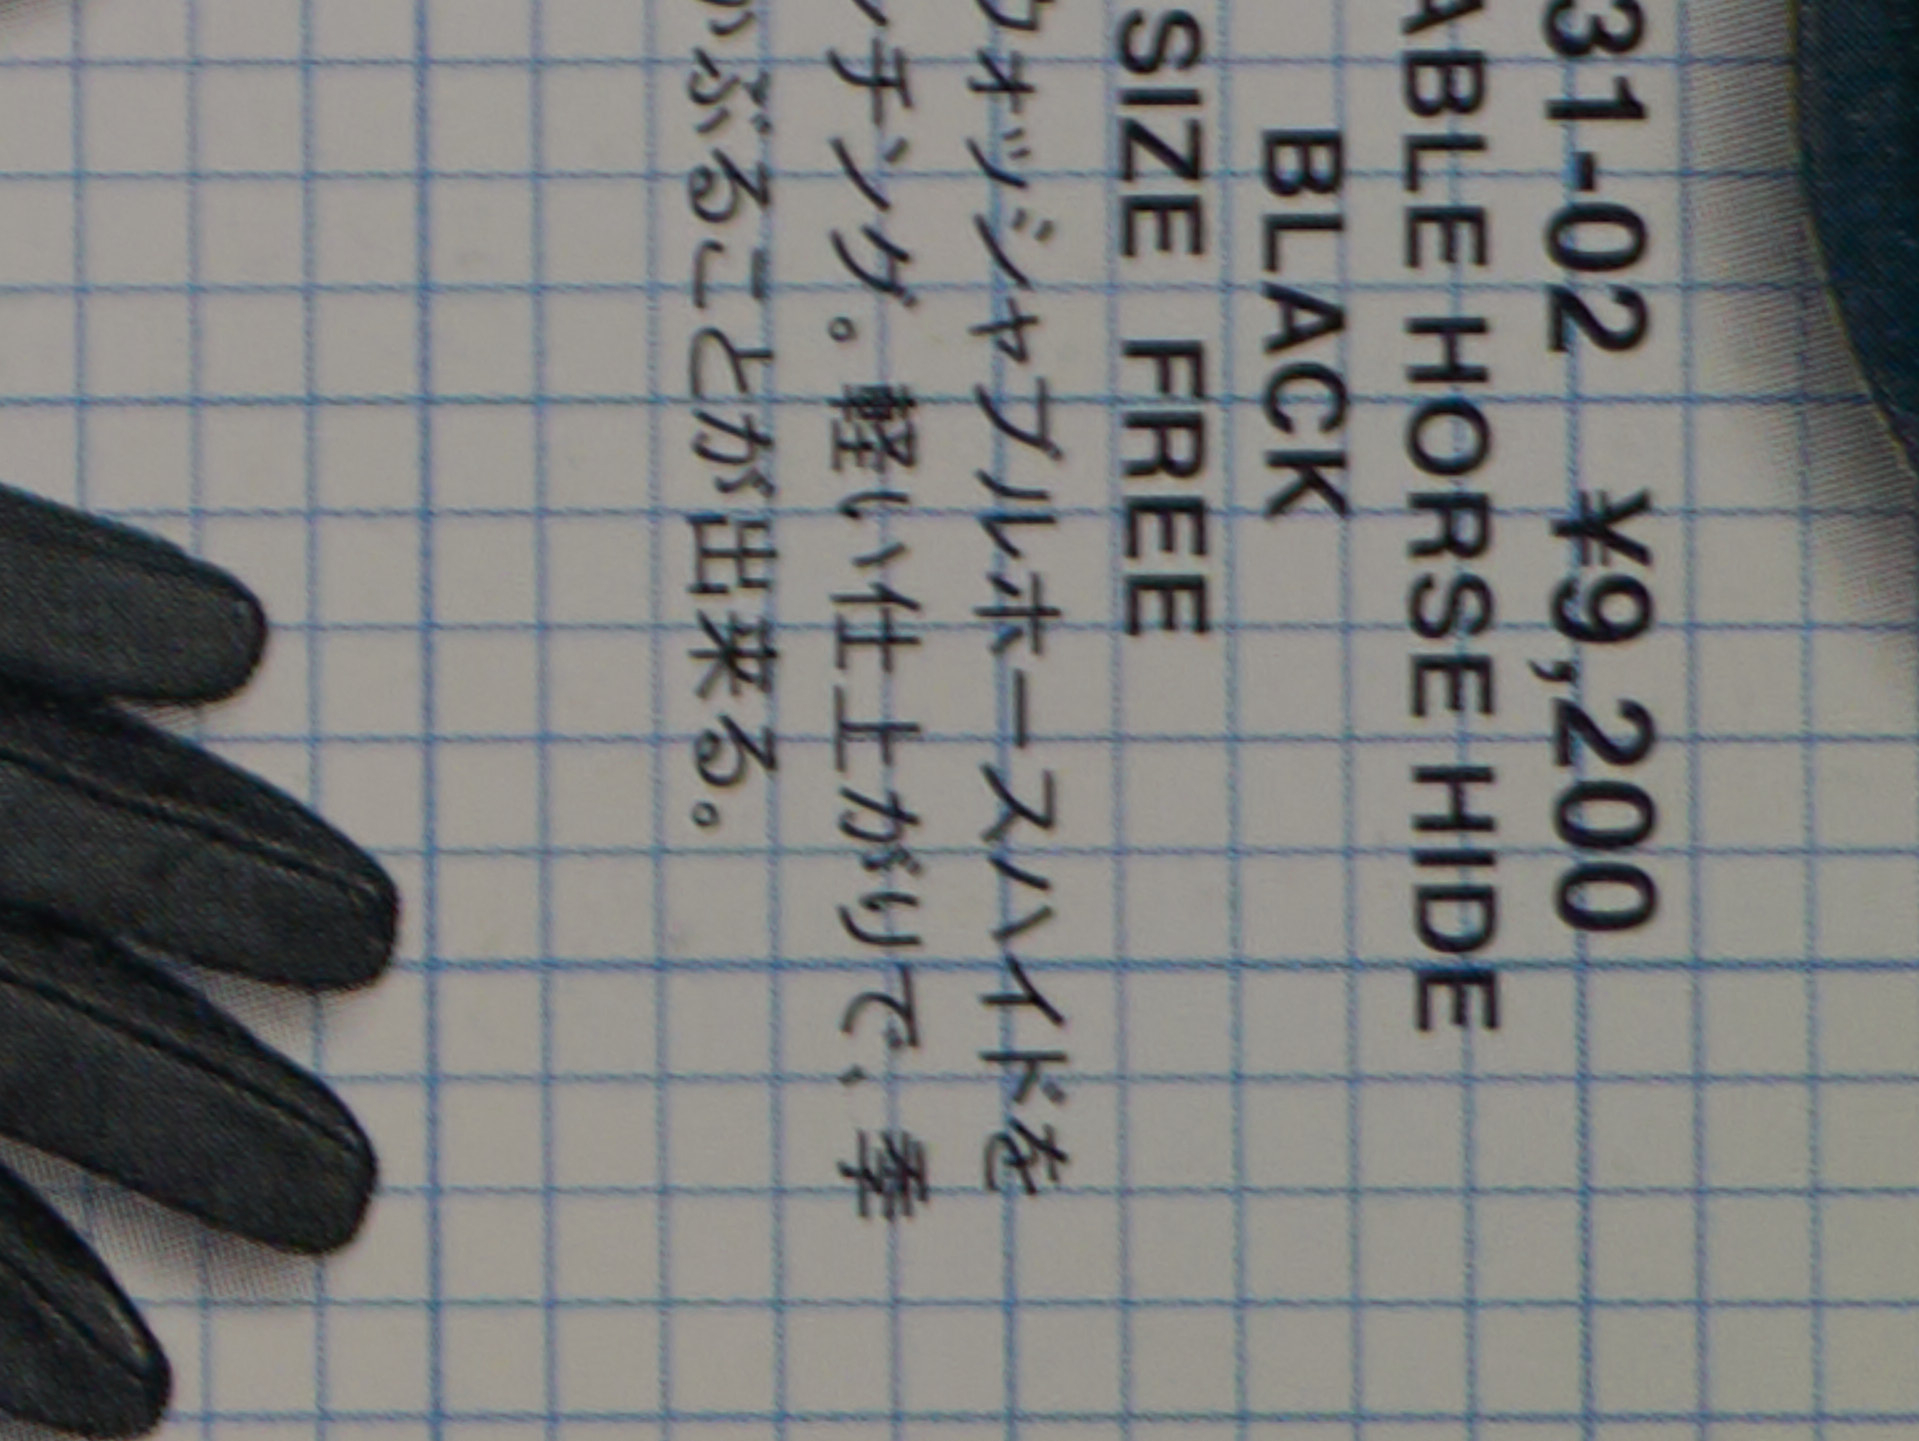 31-02 ¥9,200
ABLE HORSE HIDE
BLACK
SIZE FREE
ウォッシャブルホースハイドを
ンチング。軽い仕上がりで、季
かぶることが出来る。